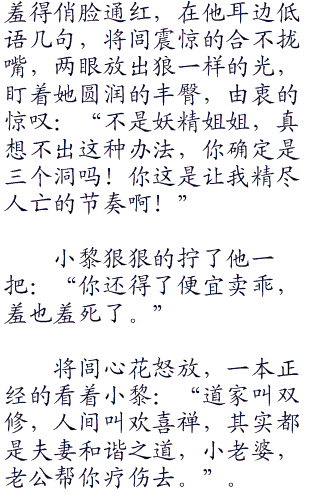 羞得俏脸通红，在他耳边低
语几句，将闾震惊的合不拢
嘴，两眼放出狼一样的光，
盯着她圆润的丰臀，由衷的
惊叹：“不是妖精姐姐，真
想不出这种办法，你确定是
三个洞吗！你这是让我精尽
人亡的节奏啊！”
小黎狠狠的拧了他一
把：“你还得了便宜卖乖，
羞也羞死了。”
将闾心花怒放，一本正
经的看着小黎：“道家叫双
修，人间叫欢喜禅，其实都
是夫妻和谐之道，小老婆，
老公帮你疗伤去。”。